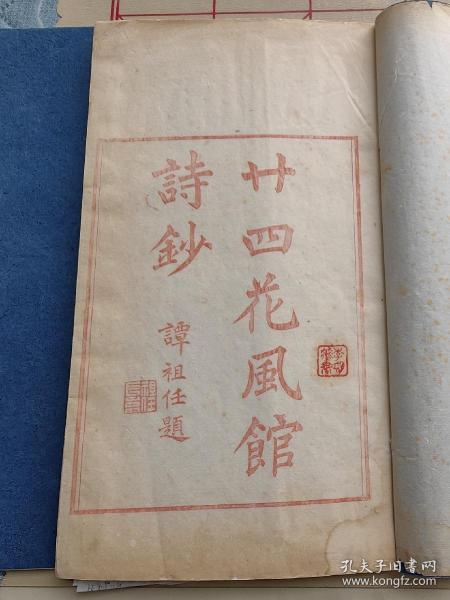 廿四花風館
詩鈔
譚祖任題
孔夫子旧书网
www.kongfz.com